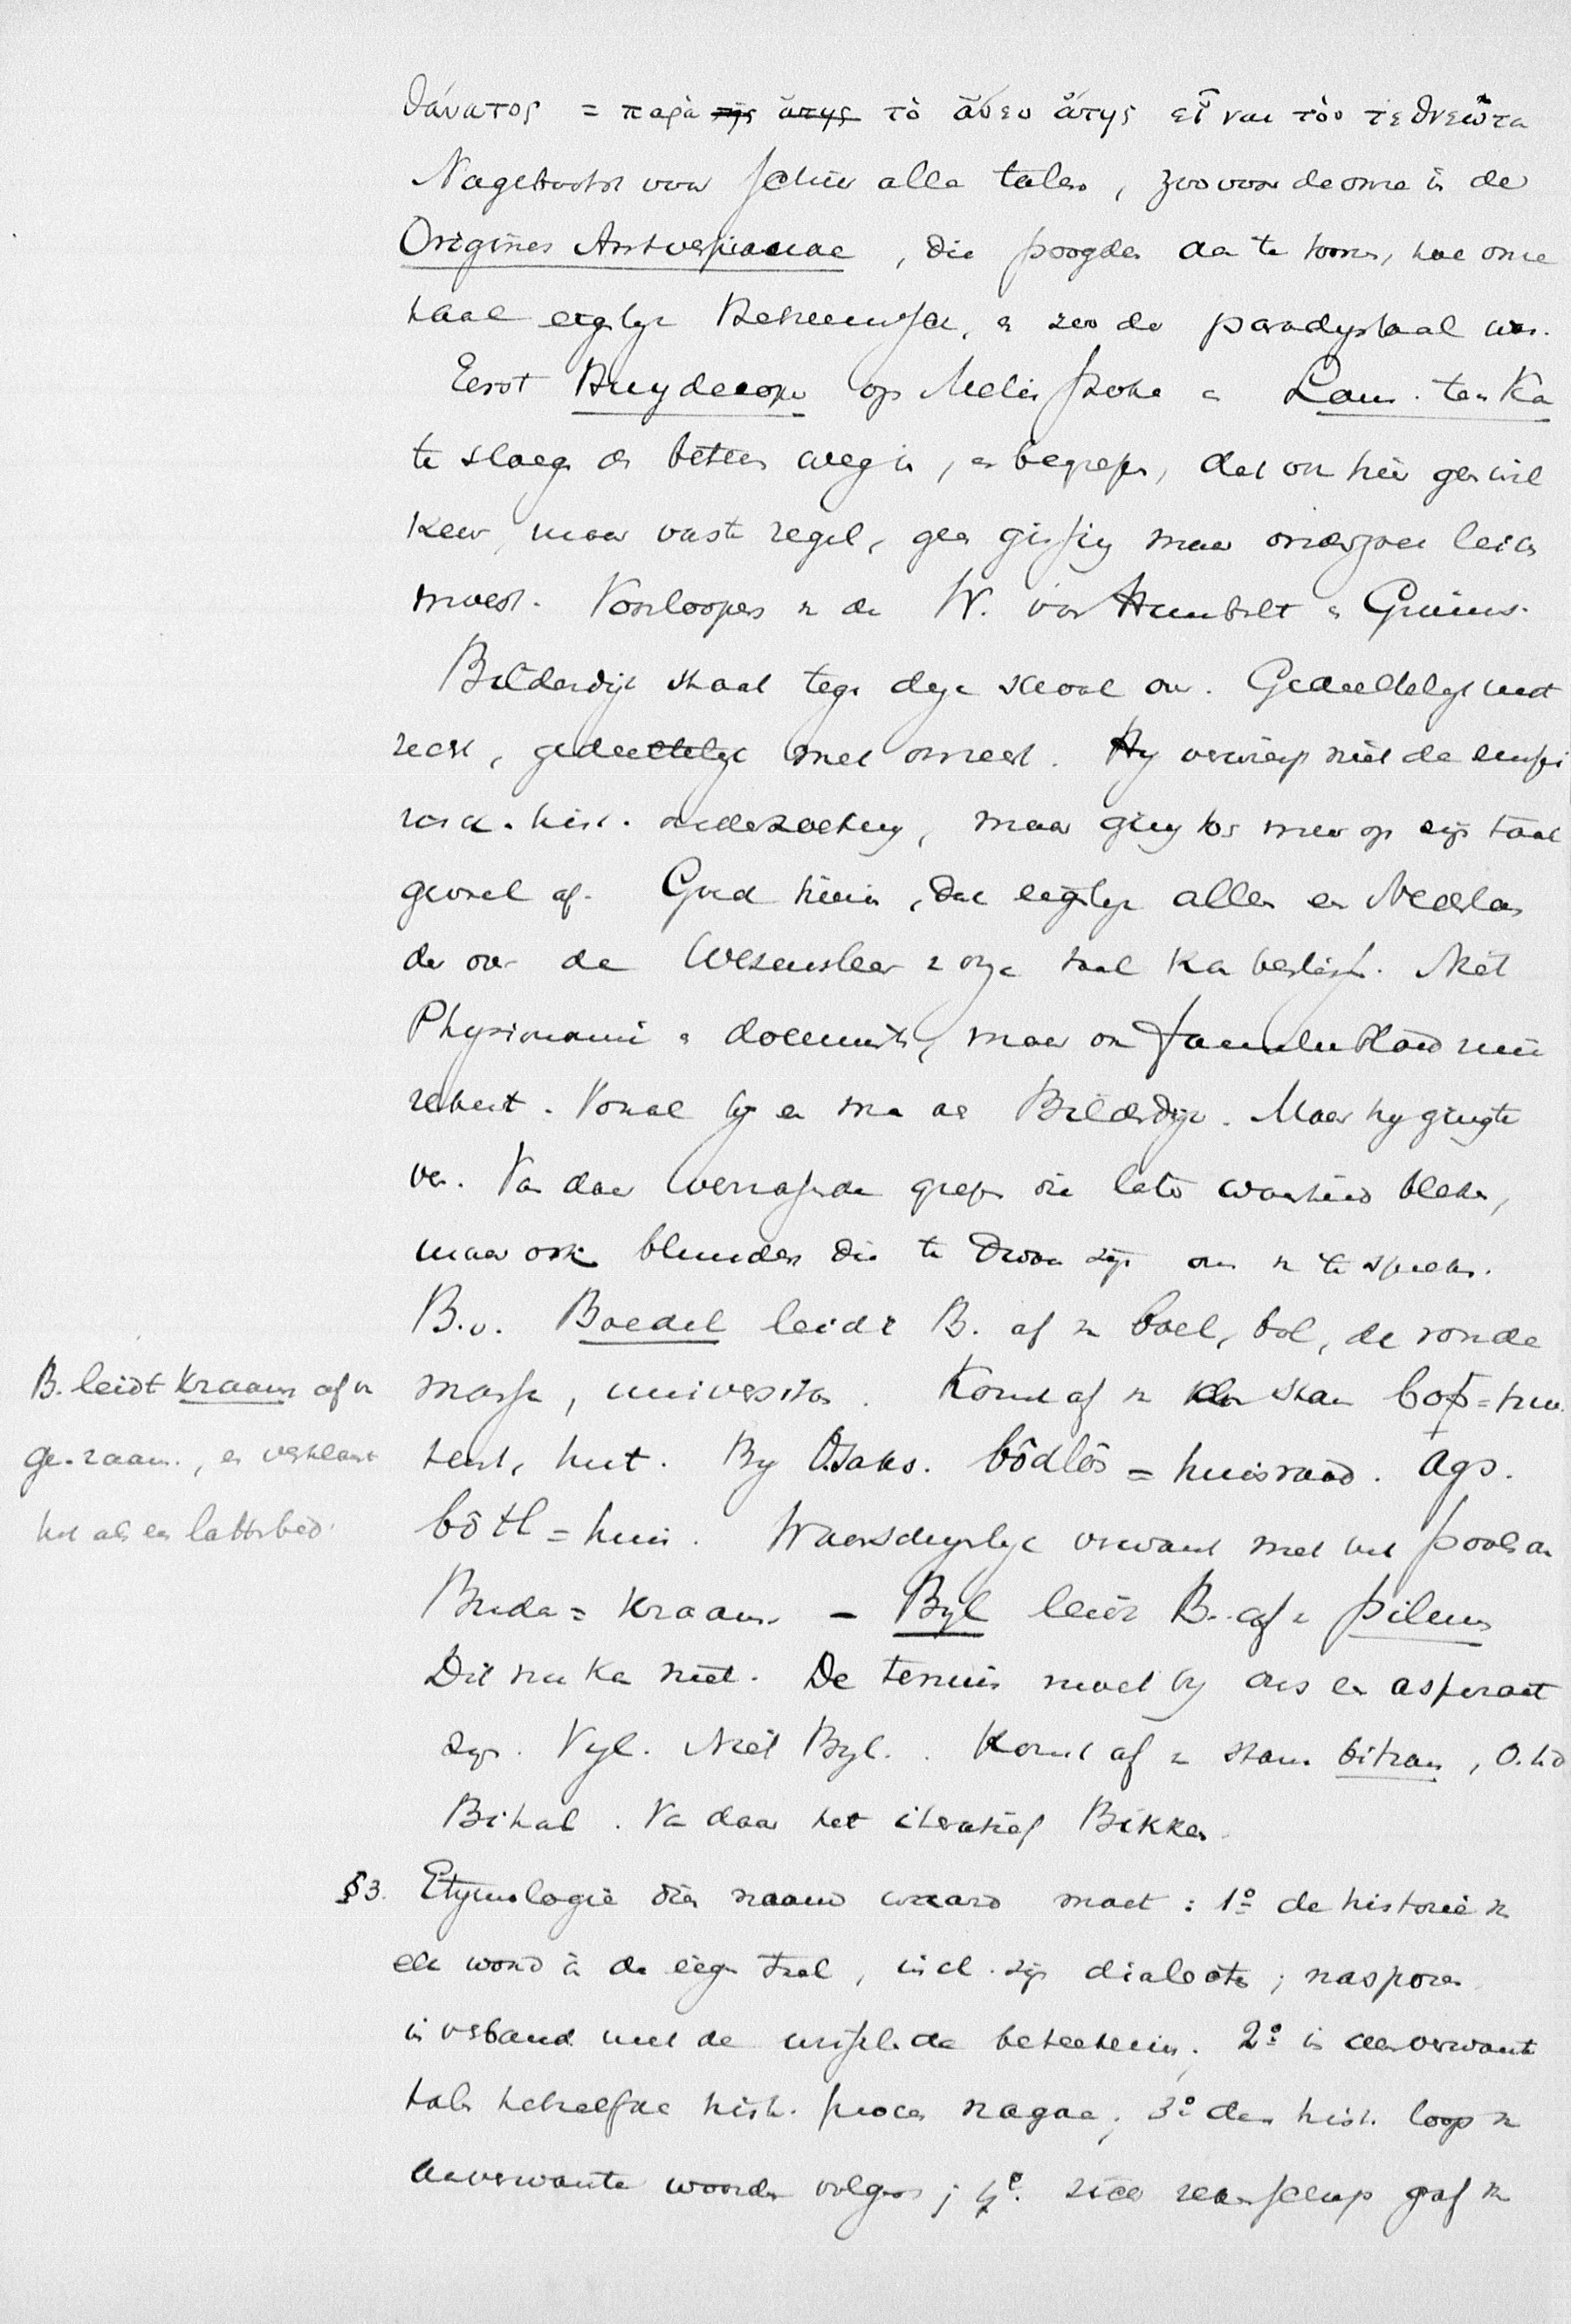 θάνατος = παρὰ τῆς ἄτης τὸ ἄνευ ἄτης εἶναι τὸν τεθνεῶτα
Nagebootst voor schier alle talen, zoo voor de onze in de
Origines Antverpianae, die poogde aan te toonen, hoe onze
taal eigelyk Bekeemsch, en zoo de paradystaal was.
Eerst Huydecoper op Melis Stoke en Lam. ten Ka
te sloegen den beteren weg in, en begrepen, dat ook hier geen wil
keur, maar vaste regel, geen gissing maar onderzoek leiden
moest. Voorloopers v. de W. von Humbolt en Grimm.
Bilderdijk staat tegen deze school over. Gedeeltelyk met
recht, gedeeltelyk met onrecht. Hy verwierp niet de empi
risch. hist. onderzoeking, maar ging tos meer op zijn taal
gevoel af. Goed hierin, dat eigelyk alleen een Nederlan
der over de Wezensleer v onze taal kan beslissen. Niet
Physionomie en documenten, maar ook familiebloed mee
rekent. Vooral by een man als Bilderdyk. Maar hy ging te
ver. Van daar verrassende grepen die later waarheid bleken,
maar ook blunders die te dwaas zijn om v. te spreken.
B.v. Boedel leidt B. af v. boel, bol, de ronde
massa, universitas. Komt af v. den stam boþ = huis.
tent, hut. By O.Saks. bôdlôs = huisraad. Ags.
bôtl = huis. Waarschynlyk verwant met het poolsche
Buda = kraam. — Byl leidt B. af v pilum
Dit nu kan niet. De tenuis moet by ons een aspiraat
zyn. Vyl. Niet Byl. Komt af v stam bikan, O.hd
Bihal. Van daar het iteratief Bikken.
B. leidt kraam af v.
ge-raam., en verklaart
het als een lattebed.
§3. Etymologie dien naam waard moet : 1º de historie v.
elk woord in de eigen taal, incl. zijn dialecten; nasporen
in verband met de wisselende beteekenis. 2º in aanverwante
talen hetzelfde hist. proces nagaan; 3º den hist. loop v.
aanverwante woorden volgen; 4º. zich rekenschap geef v.